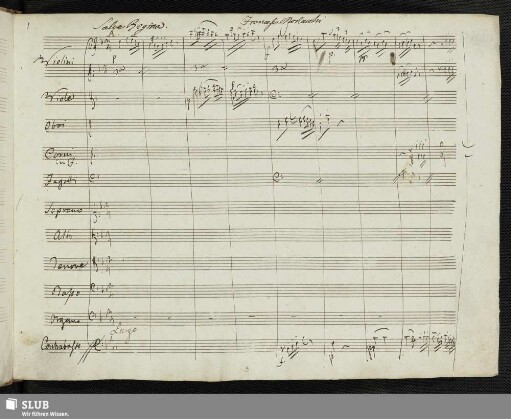 1
Salve Regina.
Violini
Viole
Oboi
Corni
in G.
Fagotti
Soprano
Alti
Tenore
Basso
Organo
Largo
Contrabasso
SLUB
Wir führen Wissen.